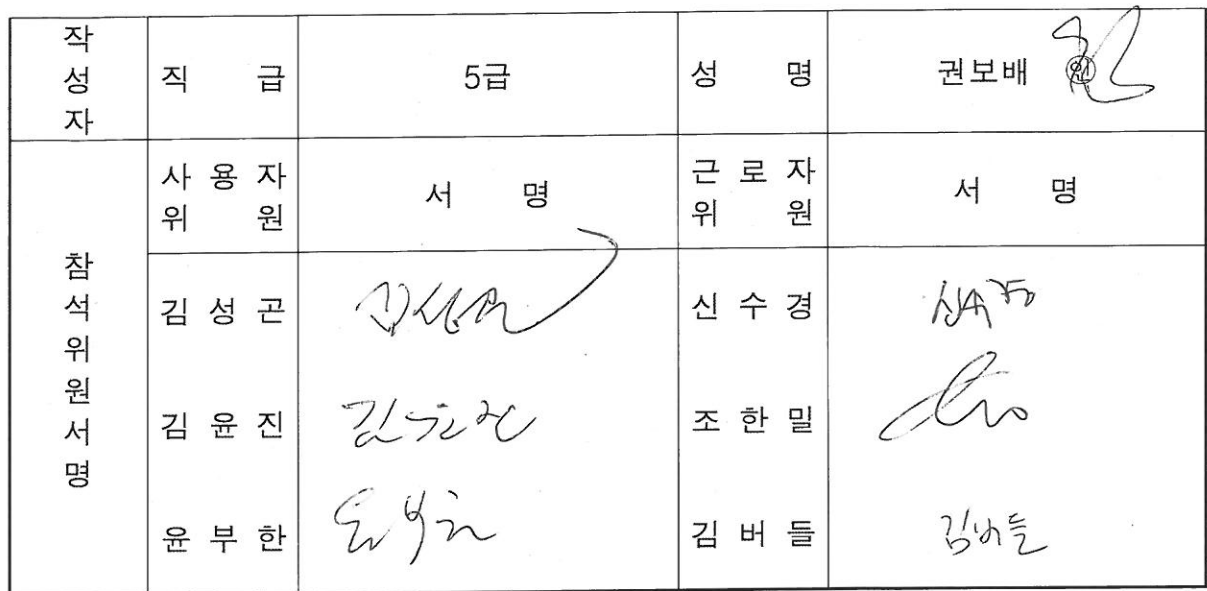 작성자 직 급 5급 성 명 권보배 ㊞
참석위원서명 사 용 자 위 원 서 명 근 로 자 위 원 서 명
김 성 곤 신 수 경
김 윤 진 조 한 밀
윤 부 한 김 버 들 김버들